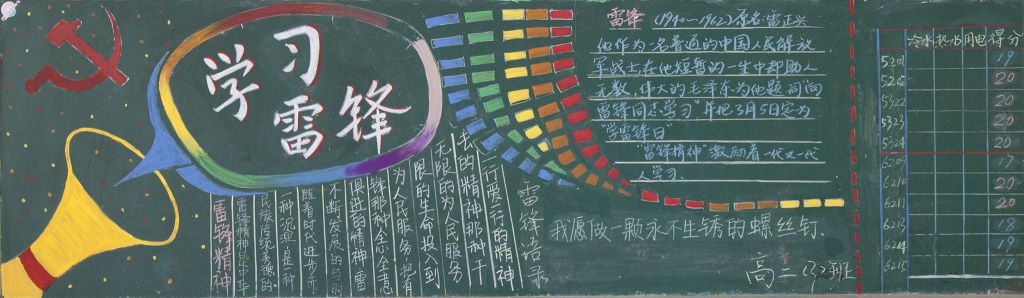 学习
雷锋
雷锋 (1940—1962)原名雷正兴
他作为一名普通的中国人民解放
军战士在他短暂的一生中帮助人
无数,伟大的毛泽东为他题词“向
雷锋同志学习”并把3月5日定为
“学雷锋日”
“雷锋精神”激励着一代又一代
人学习.
雷锋语录
我愿做一颗永不生锈的螺丝钉.
高二(3)班
雷锋精神
雷锋精神是中华
民族传统美德的
一种沉淀,是一种
随着时代进步而
不断发展的与时
俱进的精神,雷
锋那种全心全意
为人民服务,把有
限的生命投入到
无限的为人民服务
去的精神,那种干
一行爱一行的精神
冷水 热水 用电 得分
5201 19
5202 20
5322 20
5323 20
5324 20
6209 17
6210 20
6211 20
6213 18
6214 19
6215 19